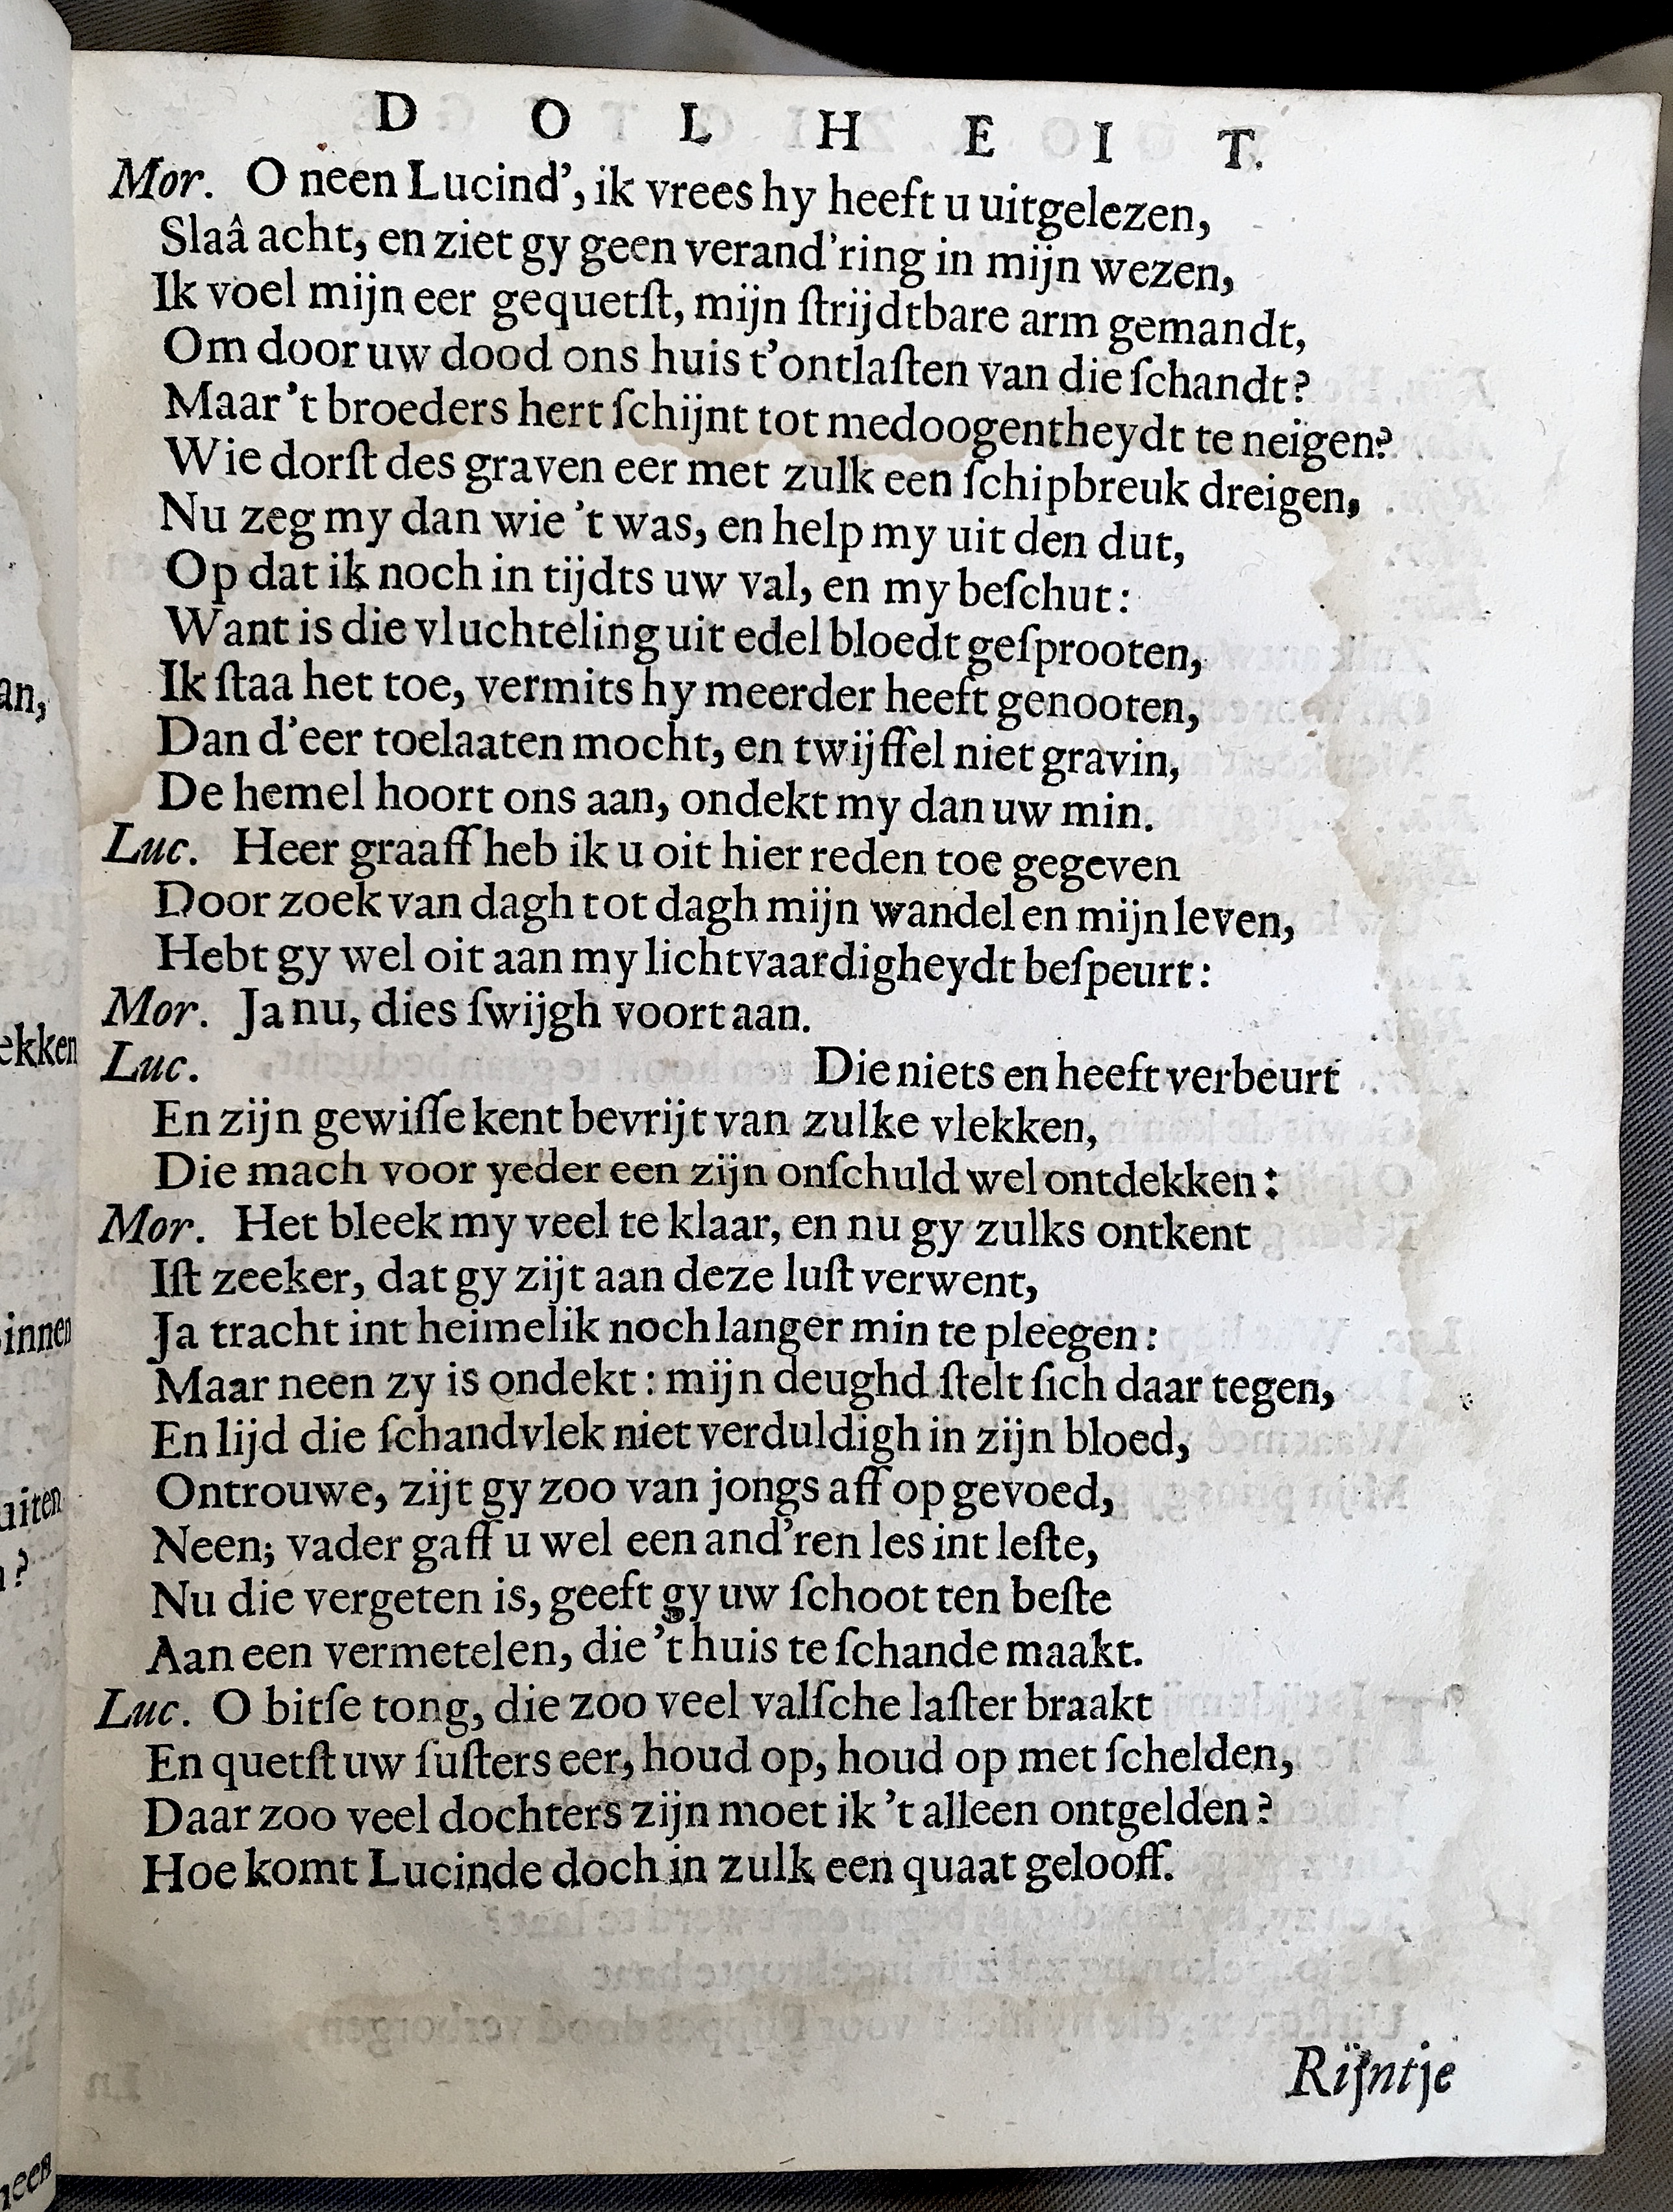 D O L H E I T.
Mor. O neen Lucind’, ik vrees hy heeft u uitgelezen,
Slaâ acht, en ziet gy geen verand’ring in mijn wezen,
Ik voel mijn eer gequetſt, mijn ſtrijdtbare arm gemandt,
Om door uw dood ons huis t’ontlaſten van die ſchandt?
Maar ’t broeders hert ſchijnt tot medoogentheydt te neigen?
Wie dorſt des graven eer met zulk een ſchipbreuk dreigen,
Nu zeg my dan wie ’t was, en help my uit den dut,
Op dat ik noch in tijdts uw val, en my beſchut:
Want is die vluchteling uit edel bloedt geſprooten,
Ik ſtaa het toe, vermits hy meerder heeft genooten,
Dan d’eer toelaaten mocht, en twijffel niet gravin,
De hemel hoort ons aan, ondekt my dan uw min.
Luc. Heer graaff heb ik u oit hier reden toe gegeven
Door zoek van dagh tot dagh mijn wandel en mijn leven,
Hebt gy wel oit aan my lichtvaardigheydt beſpeurt:
Mor. Ja nu, dies ſwijgh voort aan.
Luc. Die niets en heeft verbeurt
En zijn gewiſſe kent bevrijt van zulke vlekken,
Die mach voor yeder een zijn onſchuld wel ontdekken:
Mor. Het bleek my veel te klaar, en nu gy zulks ontkent
Iſt zeeker, dat gy zijt aan deze luſt verwent,
Ja tracht int heimelik noch langer min te pleegen:
Maar neen zy is ondekt: mijn deughd ſtelt ſich daar tegen,
En lijd die ſchandvlek niet verduldigh in zijn bloed,
Ontrouwe, zijt gy zoo van jongs aff op gevoed,
Neen; vader gaff u wel een and’ren les int leſte,
Nu die vergeten is, geeft gy uw ſchoot ten beſte
Aan een vermetelen, die ’t huis te ſchande maakt.
Luc. O bitſe tong, die zoo veel valſche laſter braakt
En quetſt uw ſuſters eer, houd op, houd op met ſchelden,
Daar zoo veel dochters zijn moet ik ’t alleen ontgelden?
Hoe komt Lucinde doch in zulk een quaat gelooff.
Rijntje